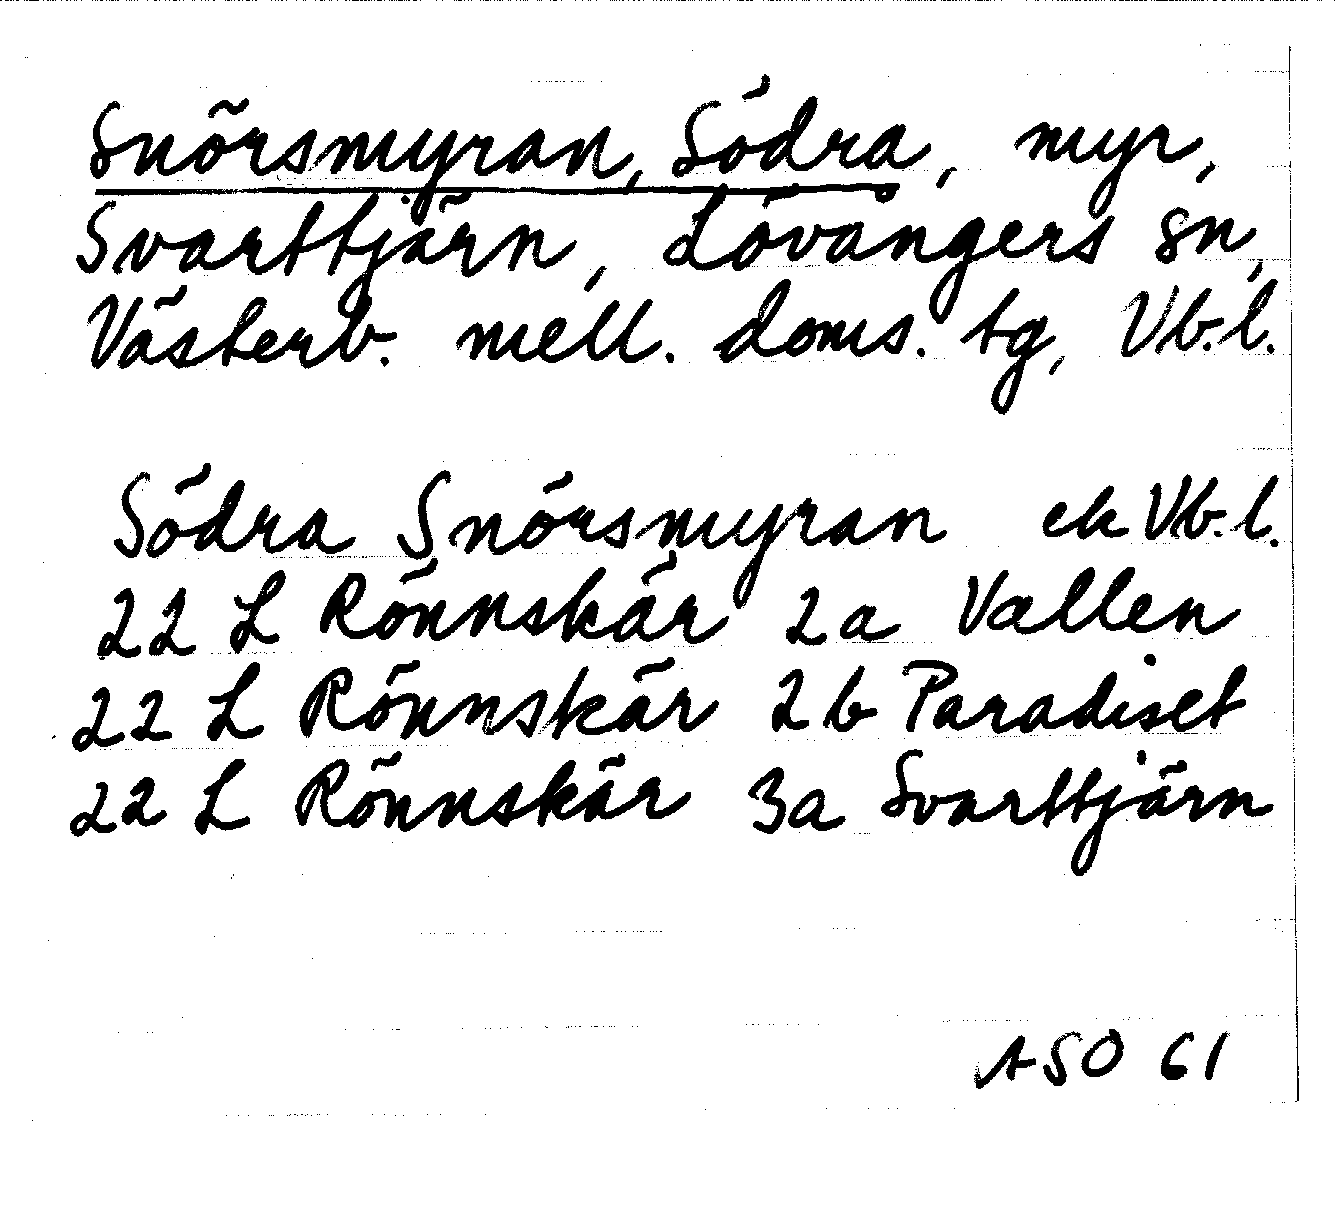 Snörsmyran, Södra, myr,
Svarttjärn, Lövångers sn,
Västerb. mell. doms. tg, Vb.l.
Södra Snörsmyran ek Vb.l.
22 L Rönnskär 2a Vallen
22 L Rönnskär 2b Paradiset
22 L Rönnskär 3a Svarttjärn
ASO 61